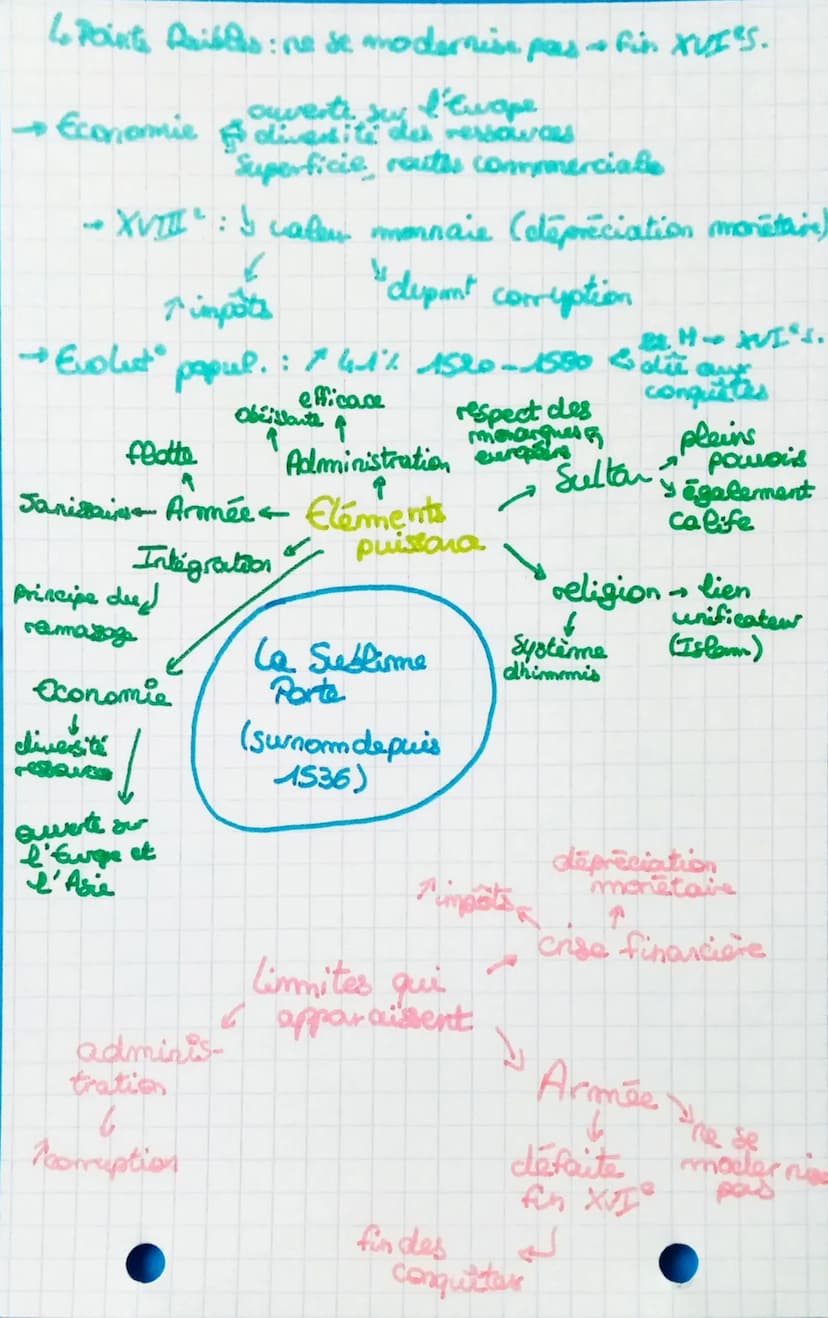 ↳ Points faibles : ne se modernise pas → fin XVIᵉ s.
ouverte sur l'Europe
→ Economie diversité des ressources
Superficie, routes commerciale
→ XVIIIᵉ : ↓ valeur monnaie (dépréciation monétaire)
↑ impôts
corruption
→ Evolut° popul. : ↗ 41% 1520-1580 dû aux
XVIᵉ s.
conquêtes
efficace
obéissante
Administration
flotte
Janissaire ← Armée ←
Eléments
puissance
respect des
monarques
européens
Sultan
pleins
pouvois
également
calife
Intégration
principe du
ramassage
religion → lien
unificateur
(Islam)
Système
dhimmis
Economie
diversité
ressources
ouverte sur
l'Europe et
l'Asie
La Sublime
Porte
(surnom depuis
1536)
dépréciation
monétaire
↑ impôts
crise financière
Limmites qui
apparaissent
adminis-
tration
↑ corruption
Armée
ne se
modernise
pas
défaite
fin XVIᵉ
fin des
conquêtes